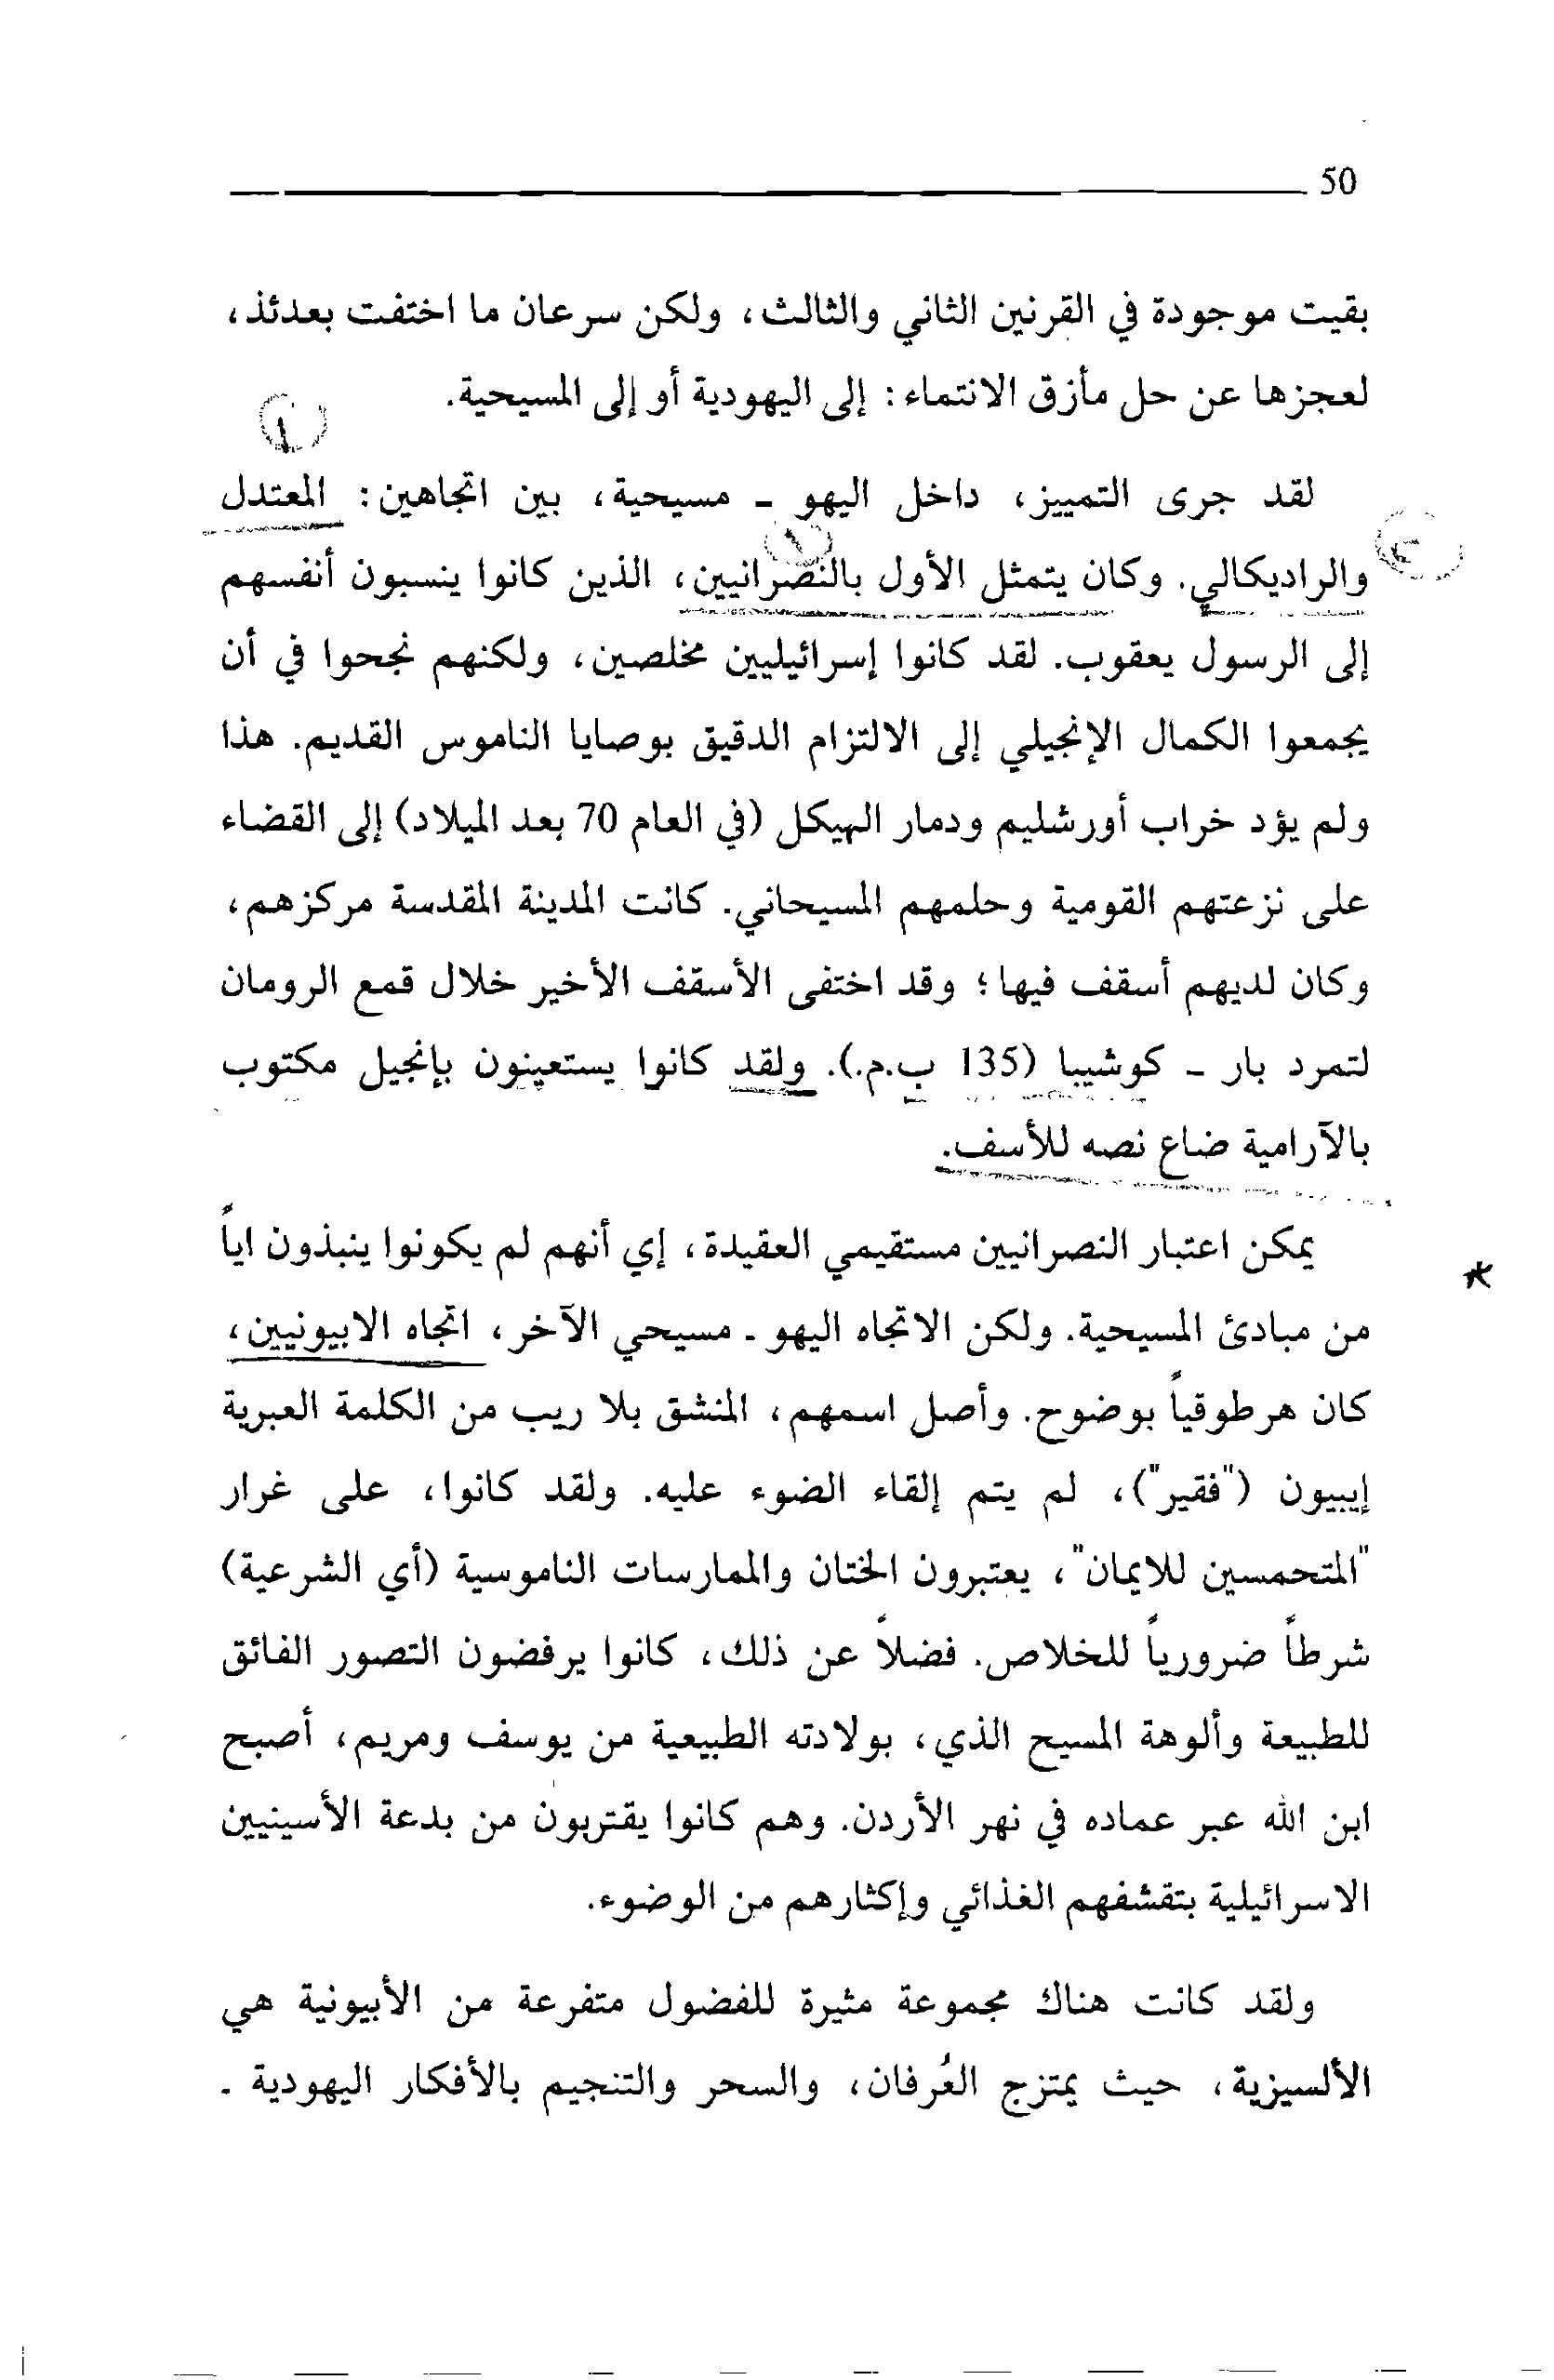 50
بقيت موجودة في القرنين الثاني والثالث، ولكن سرعان ما اختفت بعدئذ،
لعجزها عن حل مأزق الانتماء: إلى اليهودية أو إلى المسيحية.
لقد جرى التمييز، داخل اليهو - مسيحية، بين اتجاهين: المعتدل
والراديكالي. وكان يتمثل الأول بالنصرانيين، الذين كانوا ينسبون أنفسهم
إلى الرسول يعقوب. لقد كانوا إسرائيليين مخلصين، ولكنهم نجحوا في أن
يجمعوا الكمال الإنجيلي إلى الالتزام الدقيق بوصايا الناموس القديم. هذا
ولم يؤد خراب أورشليم ودمار الهيكل (في العام 70 بعد الميلاد) إلى القضاء
على نزعتهم القومية وحلمهم المسيحاني. كانت المدينة المقدسة مركزهم،
وكان لديهم أسقف فيها؛ وقد اختفى الأسقف الأخير خلال قمع الرومان
لتمرد بار - كوشيبا (135 ب.م.). ولقد كانوا يستعينون بإنجيل مكتوب
بالآرامية ضاع نصه للأسف.
يمكن اعتبار النصرانيين مستقيمي العقيدة، إي أنهم لم يكونوا ينبذون اياً
من مبادئ المسيحية. ولكن الاتجاه اليهو - مسيحي الآخر، اتجاه الابيونيين،
كان هرطوقياً بوضوح. وأصل اسمهم، المنشق بلا ريب من الكلمة العبرية
إيبيون ("فقير")، لم يتم إلقاء الضوء عليه. ولقد كانوا، على غرار
"المتحمسين للايمان"، يعتبرون الختان والممارسات الناموسية (أي الشرعية)
شرطاً ضرورياً للخلاص. فضلاً عن ذلك، كانوا يرفضون التصور الفائق
للطبيعة وألوهة المسيح الذي، بولادته الطبيعية من يوسف ومريم، أصبح
ابن الله عبر عماده في نهر الأردن. وهم كانوا يقتربون من بدعة الأسينيين
الاسرائيلية بتقشفهم الغذائي وإكثارهم من الوضوء.
ولقد كانت هناك مجموعة مثيرة للفضول متفرعة من الأبيونية هي
الألسيزية، حيث يمتزج العُرفان، والسحر والتنجيم بالأفكار اليهودية -